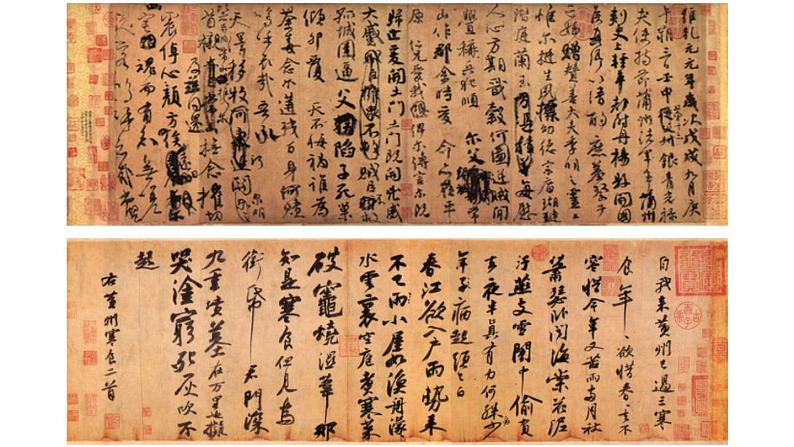 維乾元元年歲次戊戌九月庚
午朔三日壬申第十三叔銀青光祿
夫使持節蒲州諸軍事蒲州
刺史上輕車都尉丹楊縣開國
侯真卿以清酌庶羞祭于
亡姪贈贊善大夫季明之靈曰
惟爾挺生夙標幼德宗廟瑚璉
階庭蘭玉每慰
人心方期戩穀何圖逆賊間
釁稱兵犯順爾父竭誠常
山作郡余時受命亦在平
原仁兄愛我俾爾傳言爾既
歸止爰開土門土門既開凶威
大蹙賊臣不救
孤城圍逼父陷子死巢
傾卵覆天不悔禍誰為
荼毒念爾遘殘百身何贖
嗚呼哀哉吾承
天澤移牧河關泉明
首櫬及茲同還撫念摧切
震悼心顏方俟遠日
魂而有知無嗟
自我來黃州已過三寒
食年年欲惜春春去不
容惜今年又苦雨兩月秋
蕭瑟臥聞海棠花泥
汙燕支雪闇中偷負
去夜半真有力何殊少
年子病起頭已白
春江欲入戶雨勢來
不已雨小屋如漁舟濛濛
水雲裏空庖煮寒菜
破竈燒濕葦那
知是寒食但見烏
銜帋君門深
九重墳墓在万里也擬
哭塗窮死灰吹不
起
右黃州寒食二首